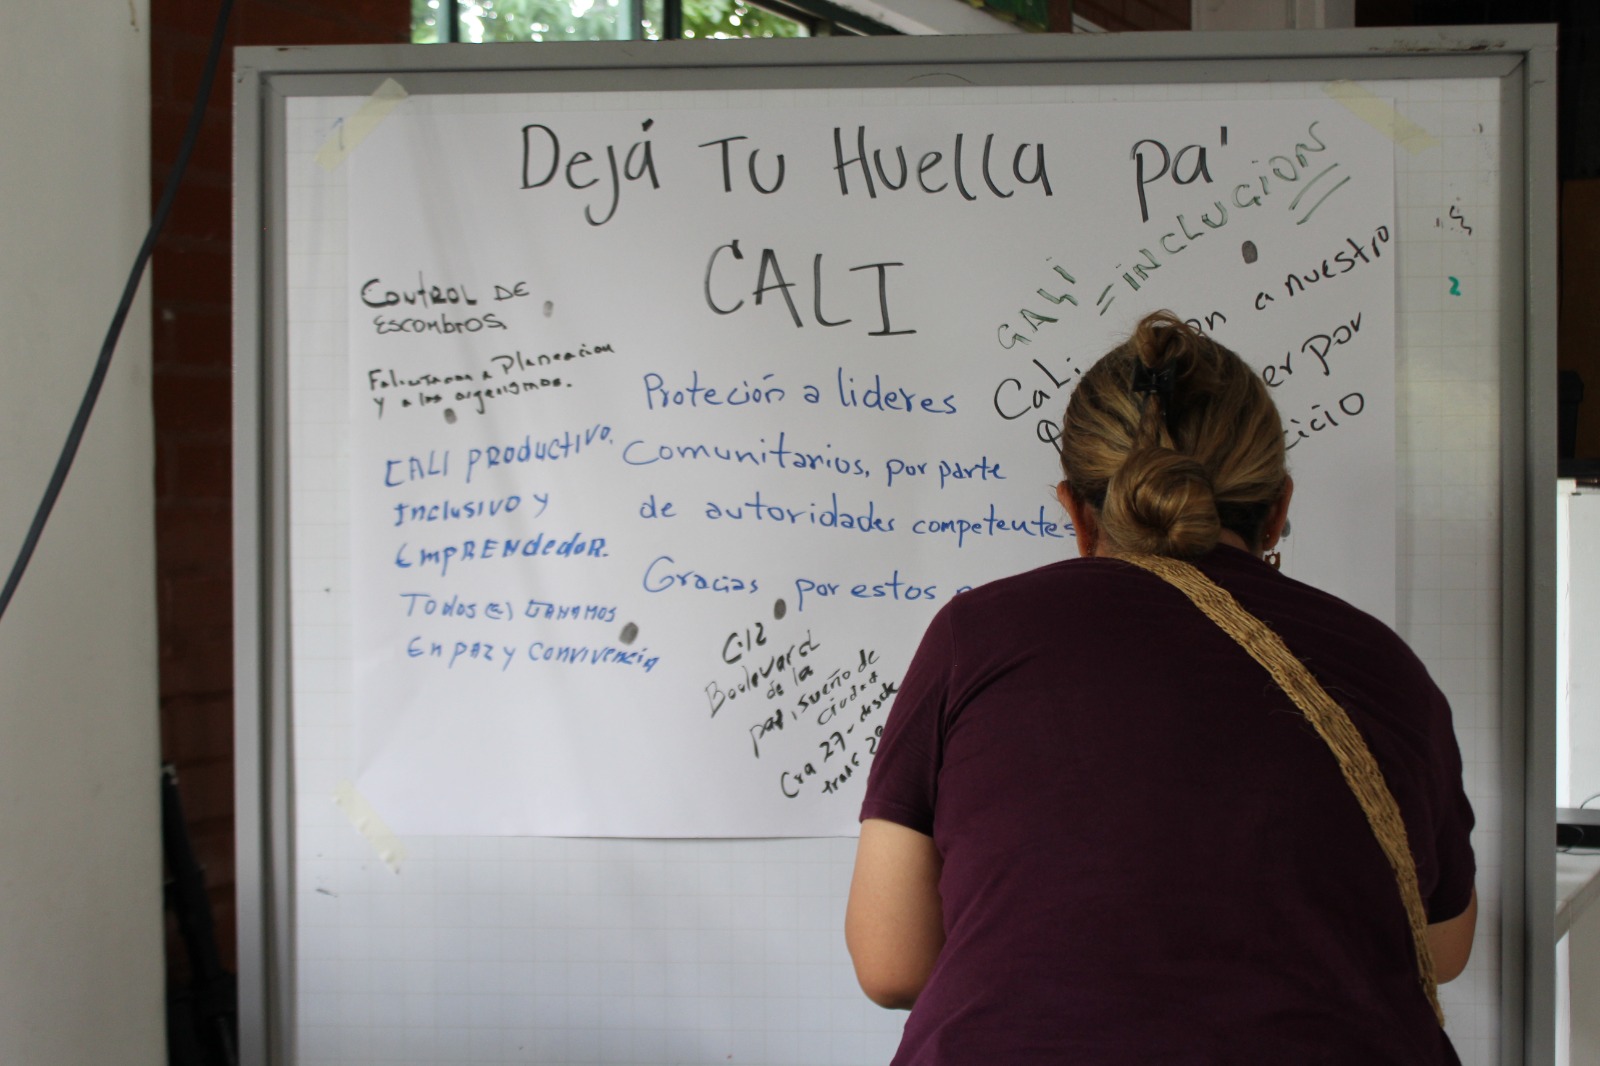 Dejá Tu Huella pa'
CALI
CONTROL DE
escombros
a Planeacion
y a los
CALI PRODUCTIVO.
Inclusivo y
EmpRENdedoR.
Todos(as) GANAMOS
En paz y convivencia
Proteción a lideres
Comunitarios, por parte
de autoridades competentes
Gracias por estos
C12
Boulevard
de la
paz, sueño de
ciudad
Cra 27- desde
CALI
= INCLUCION
Cali
a nuestro
por